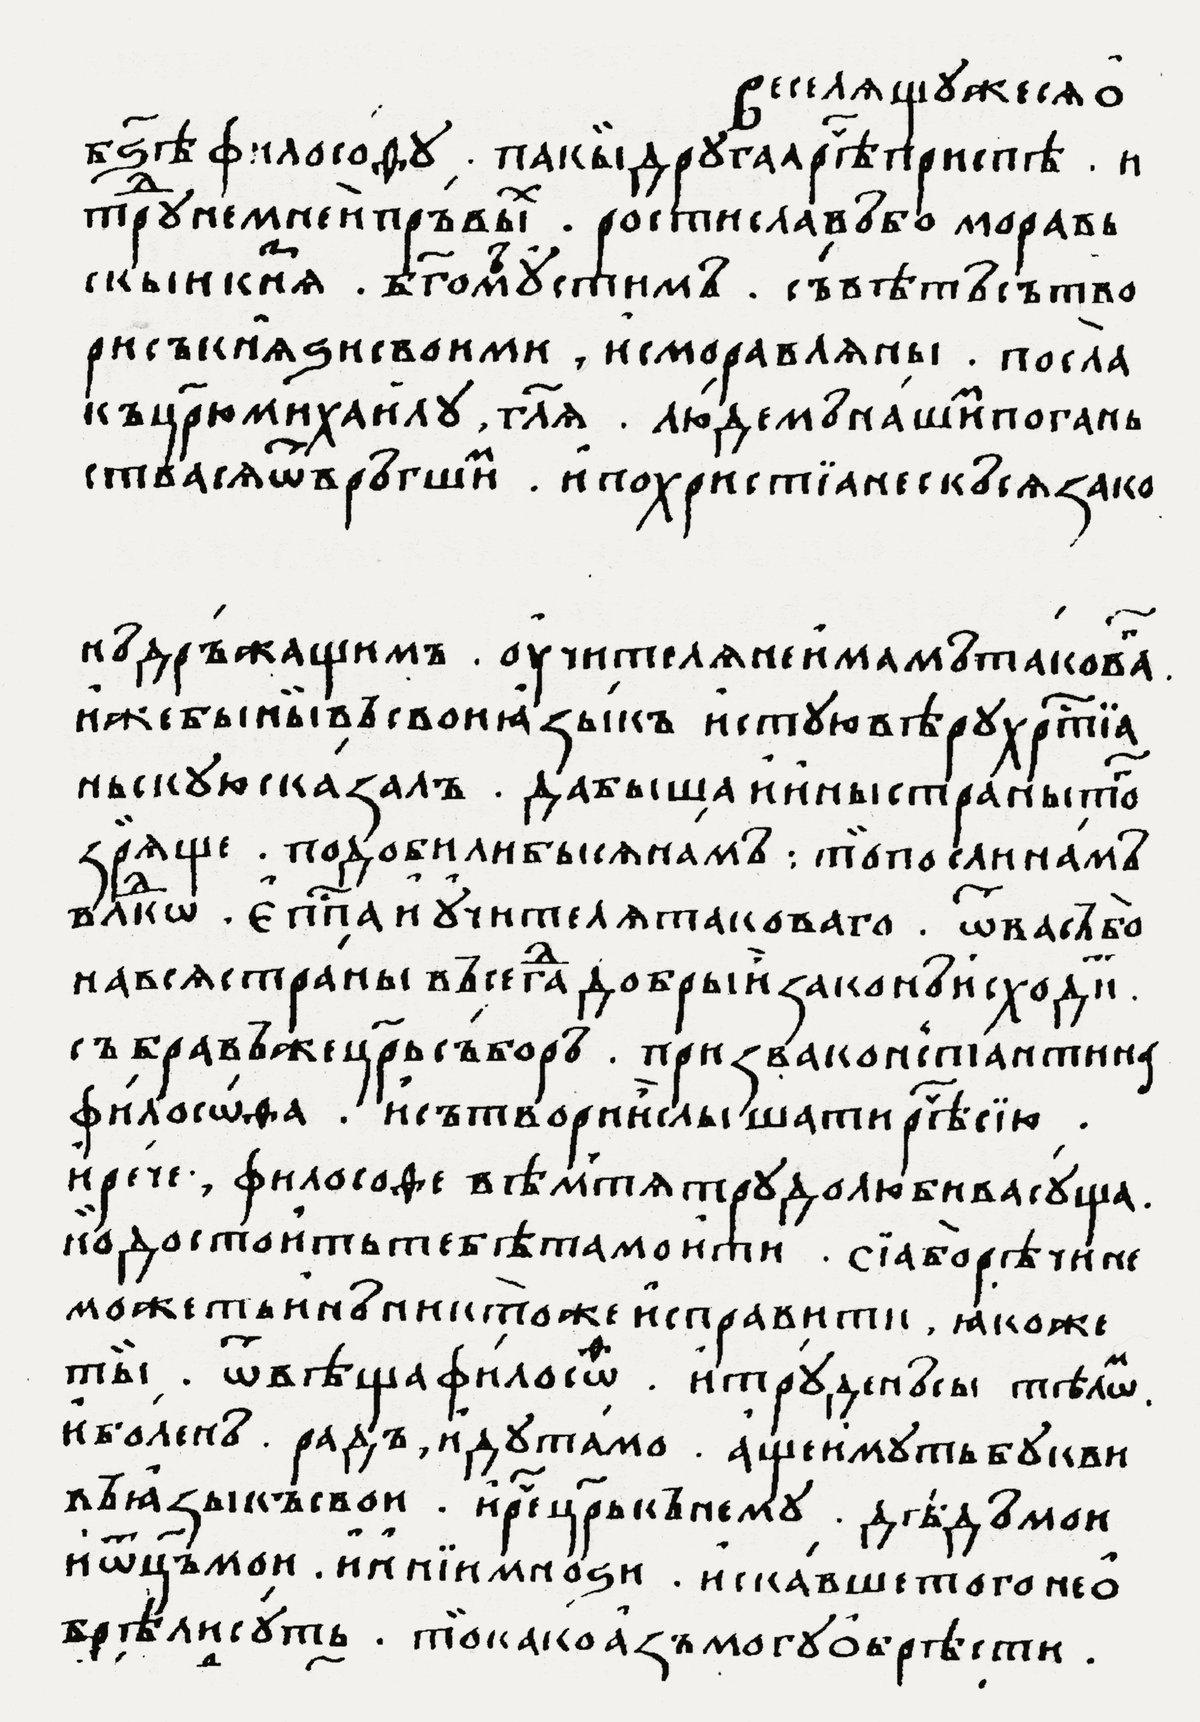 веселящуѫесѧ ѻ҆
бз҃ѣ филосоѳу . пакы другаа рѣ҃ч приспѣ . и
трꙋⷣ не мнеи прьвыⷯ . ростиславъ бо моравь
скыи кнѧ҃ . бг҃омъ ꙋстимъ . съвѣтъ сътво
ри съ кнѧѕи своими , и с моравлѧны . посла
къ цр҃ю михаилꙋ , гл҃ѧ . людемъ нашиⷨ погань
ства сѧ ѿвръгшиⷨ . и по христїанескъ сѧ зако
нъ дръжащим . оучителѧ не имамъ такова҃ .
иже бы ны въ свои ꙗзыкъ истꙋю вѣрꙋ хрⷭ҇тїа
ньскꙋю сказалъ . да быша и ины страны то҃
зрѧще . подобили бы сѧ намъ : то посли намъ
влⷣко . єпⷭ҇па и ꙋчителѧ таковаго . ѿ вас бо
на всѧ страны въсегⷣа добрыи законъ исходиⷮ .
събравъ же цр҃ь съборъ . призва коньстаⷩтина
филосѡѳа . и сътвори и слышати рѣ҃ч сїю .
и рече , философе вѣмь тѧ трꙋдолюбива сꙋща .
но достоить тебѣ тамо ити . сїа бо рѣчи не
можеть инъ никтоже исправити , ꙗкоже
ты . ѿвѣща филосѡⷴ . и трꙋденъ сы тѣлѡⷨ .
и боленъ . радъ , идꙋ тамо . аще имꙋть букви
въ ꙗзыкъ свои . и рече҃ цр҃ь къ немꙋ . дѣдъ мои
и ѿць мои . и инїи мноѕи . искавше того не ѻ
брѣли сꙋть . то како азъ могꙋ ѻбрѣсти .